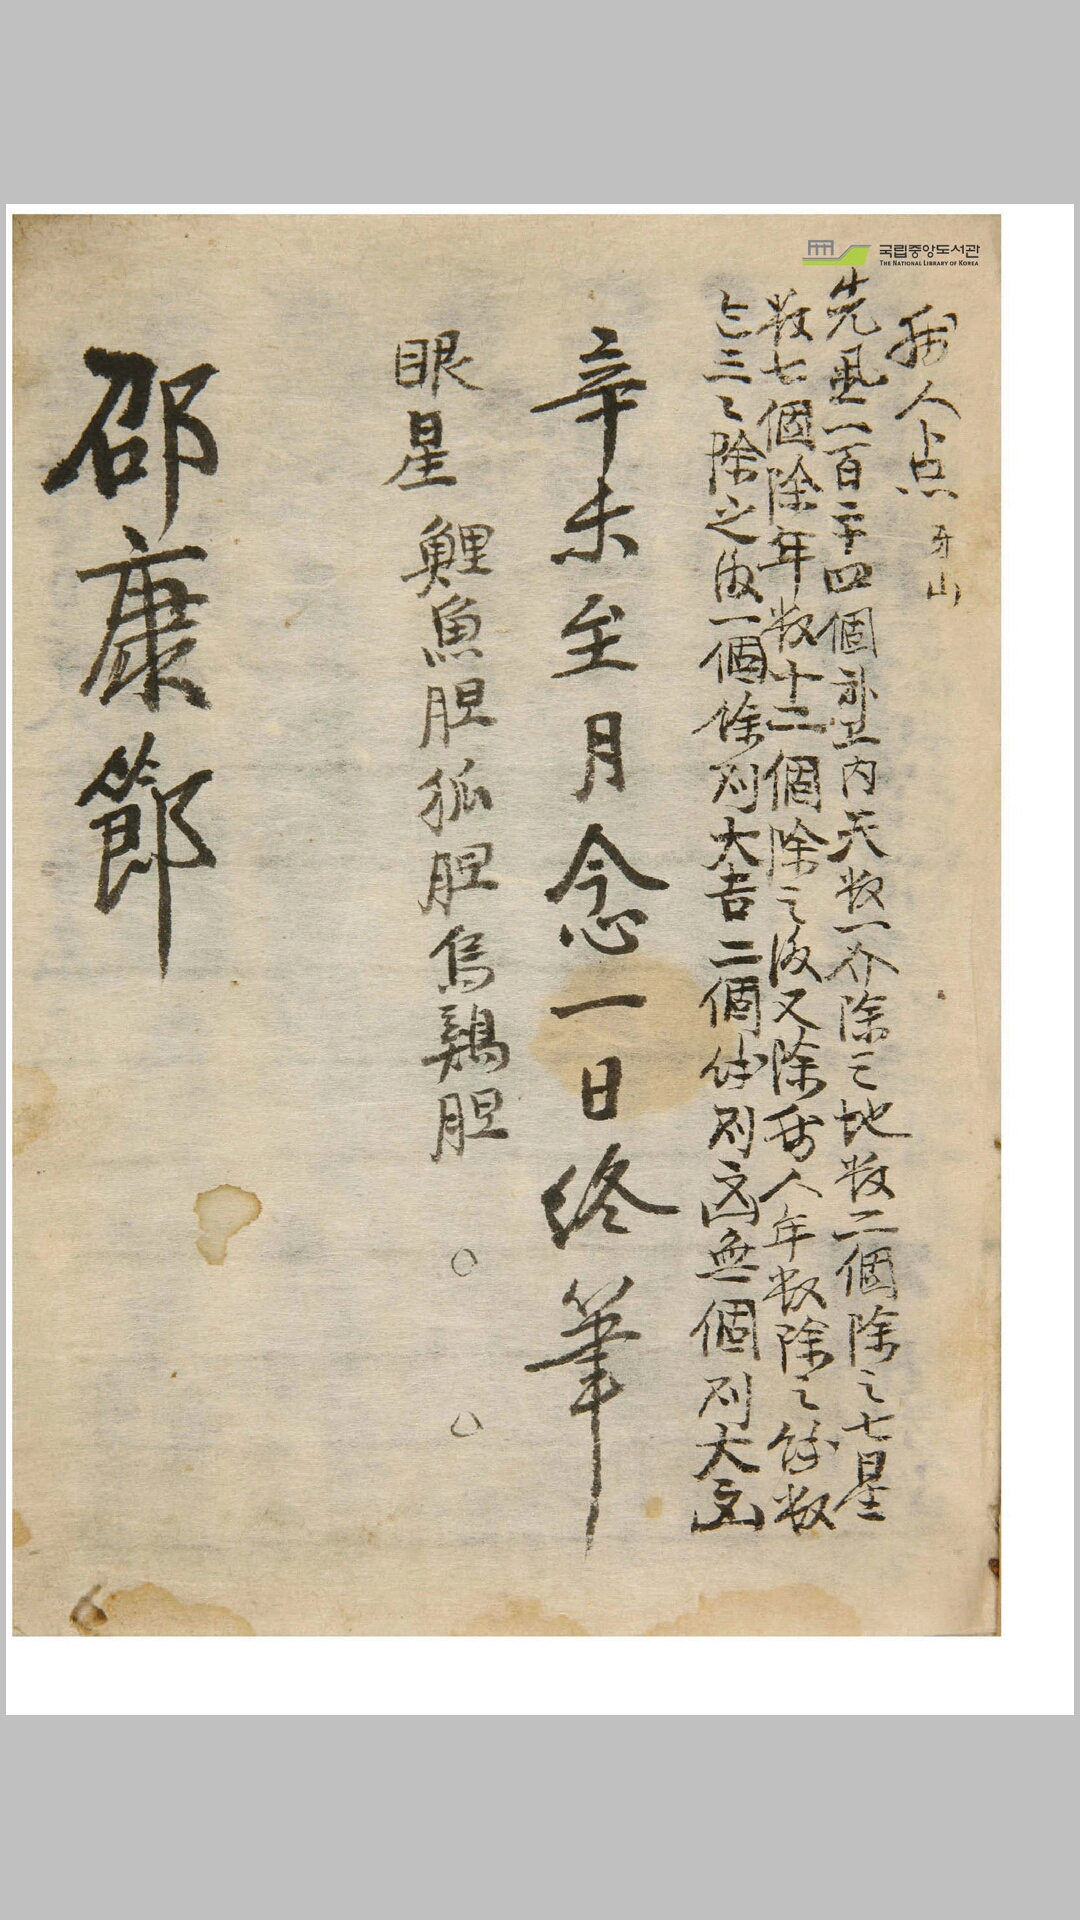 국립중앙도서관
THE NATIONAL LIBRARY OF KOREA
人占
先置一百二十四個 内 天数一介除之地数二個除之七星
数七個除年数十二個除之後又除 人年数除之餘数
三三除之後一個餘則大吉二個餘則凶無個則大凶
辛未至月念一日終筆
眼星 鯉魚胆狐胆烏鷄胆 ○ ○
邵康節